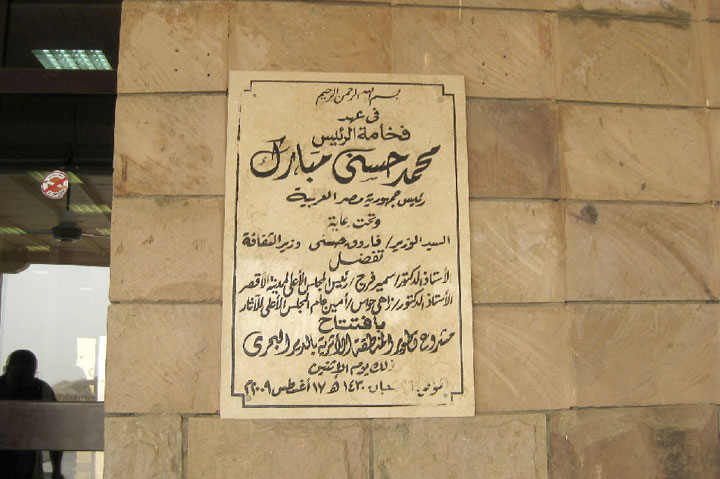 بسم الله الرحمن الرحيم
فى عهد
فخامة الرئيس
محمد حسنى مبارك
رئيس جمهورية مصر العربية
وتحت رعاية
السيد الوزير/ فاروق حسنى وزير الثقافة
تفضل
الأستاذ الدكتور/ سمير فرج/ رئيس المجلس الأعلى لمدينة الأقصر
الأستاذ الدكتور/ زاهى حواس/ أمين عام المجلس الأعلى للآثار
بافتتاح
مشروع تطوير المنطقة الأثرية بالدير البحرى
وذلك يوم الإثنين
١٤٣٠ هـ ١٧ أغسطس ٢٠٠٩ م